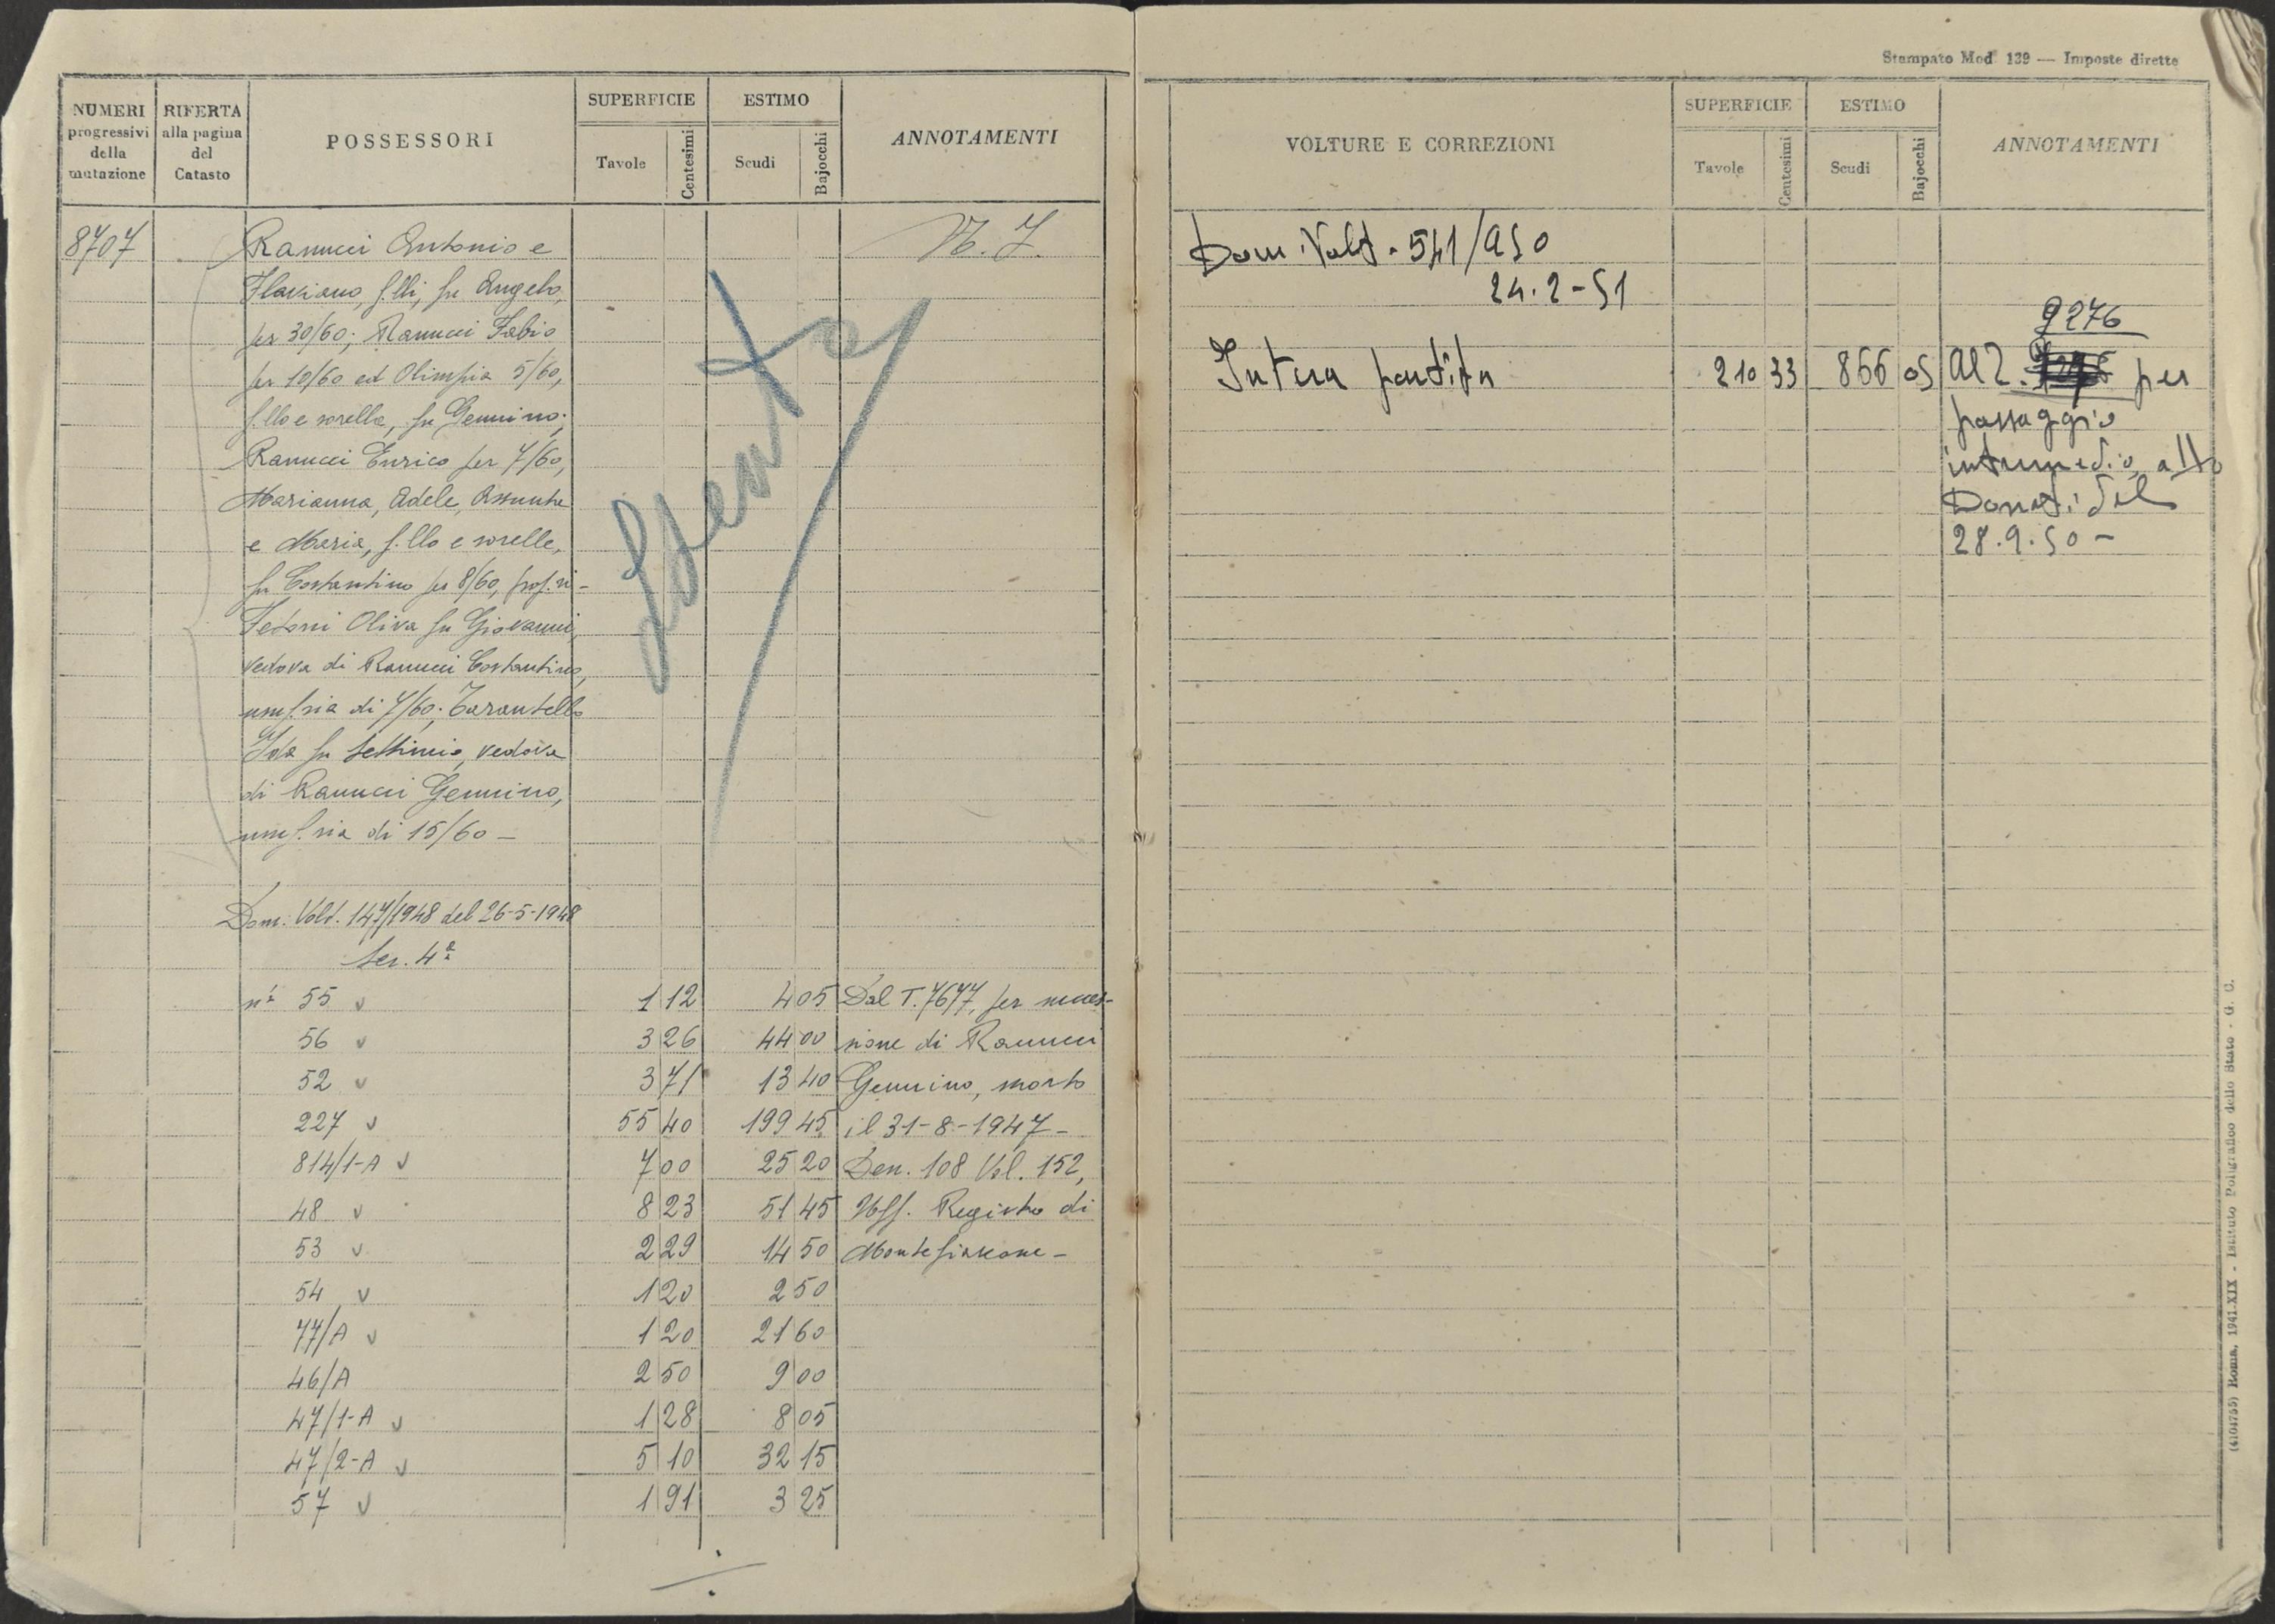 NUMERI progressivi della mutazione
RIFERTA alla pagina del Catasto
POSSESSORI
SUPERFICIE
Tavole
Centesimi
ESTIMO
Scudi
Bajocchi
ANNOTAMENTI
8707
Ranucci Antonio e
Flaviano, f.lli, fu Angelo,
per 30/60; Ranucci Fabio
per 10/60 ed Olimpia 5/60,
f.llo e sorella, fu Gemmino;
Ranucci Enrico per 7/60,
Marianna, Adele, Assunta
e Maria, f.llo e sorelle,
fu Costantino per 8/60, prop.ri -
Fetoni Oliva fu Giovanni,
vedova di Ranucci Costantino,
usuf.ria di 7/60; Tarantello
Ida fu Settimio, vedova
di Ranucci Gemmino,
usuf.ria di 15/60 -
Dom. Volt. 147/1948 del 26-5-1948
Sez. 4ª
Spento
nⁱ 55 v 1 12 4 05 Dal T. 7677, per succes-
56 v 3 26 44 00 sione di Ranucci
52 v 3 71 13 40 Gemmino, morto
227 v 55 40 199 45 il 31-8-1947 -
814/1-A v 7 00 25 20 Den. 108 Vol. 152,
48 v 8 23 51 45 Uff. Registro di
53 v 2 29 14 50 Montefiascone -
54 v 1 20 2 50
77/A v 1 20 21 60
46/A 2 50 9 00
47/1-A v 1 28 8 05
47/2-A v 5 10 32 15
57 v 1 91 3 25
Stampato Mod. 139 — Imposte dirette
VOLTURE E CORREZIONI
SUPERFICIE
Tavole
Centesimi
ESTIMO
Scudi
Bajocchi
ANNOTAMENTI
Dom. Volt. 541/950
24.2-51
9276
Intera partita 210 33 866 05 al 2. per
passaggio
intermedio, atto
Donati del
28.9.50 -
(4104755) Roma, 1941-XIX - Istituto Poligrafico dello Stato - G. C.